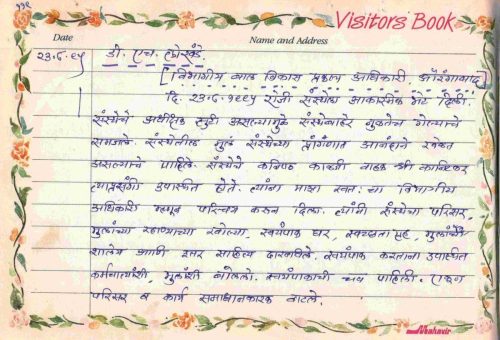 ११९
Visitors Book
Date Name and Address
२३.६.९५ डी. एच.
[विभागीय बाल विकास प्रकल्प अधिकारी, औरंगाबाद]
दि. २३.६.१९९५ रोजी संस्थेस आकस्मिक भेट दिली.
संस्थेचे अधीक्षक सुटी असल्यामुळे संस्थेबाहेर गेल्याचे
समजले. संस्थेतील मुले संस्थेच्या प्रांगणात आनंदाने खेळत
असल्याचे पाहिले. संस्थेचे कनिष्ठ काळजी वाहक श्री
त्याप्रसंगी उपस्थित होते. त्यांना माझा स्वतः चा विभागीय
अधिकारी म्हणून परिचय करून दिला. त्यांनी संस्थेचा परिसर,
मुलांच्या रहाण्याच्या खोल्या, स्वयंपाक घर, स्वच्छता गृह, मुलांचे
शालेय आणि इतर साहित्य दाखविले. स्वयंपाक करताना उपस्थित
कर्मचाऱ्यांशी, मुलांशी बोललो. स्वयंपाकाची चव पाहिली. एकूण
परिसर व कार्य समाधानकारक वाटले.
Mahavir